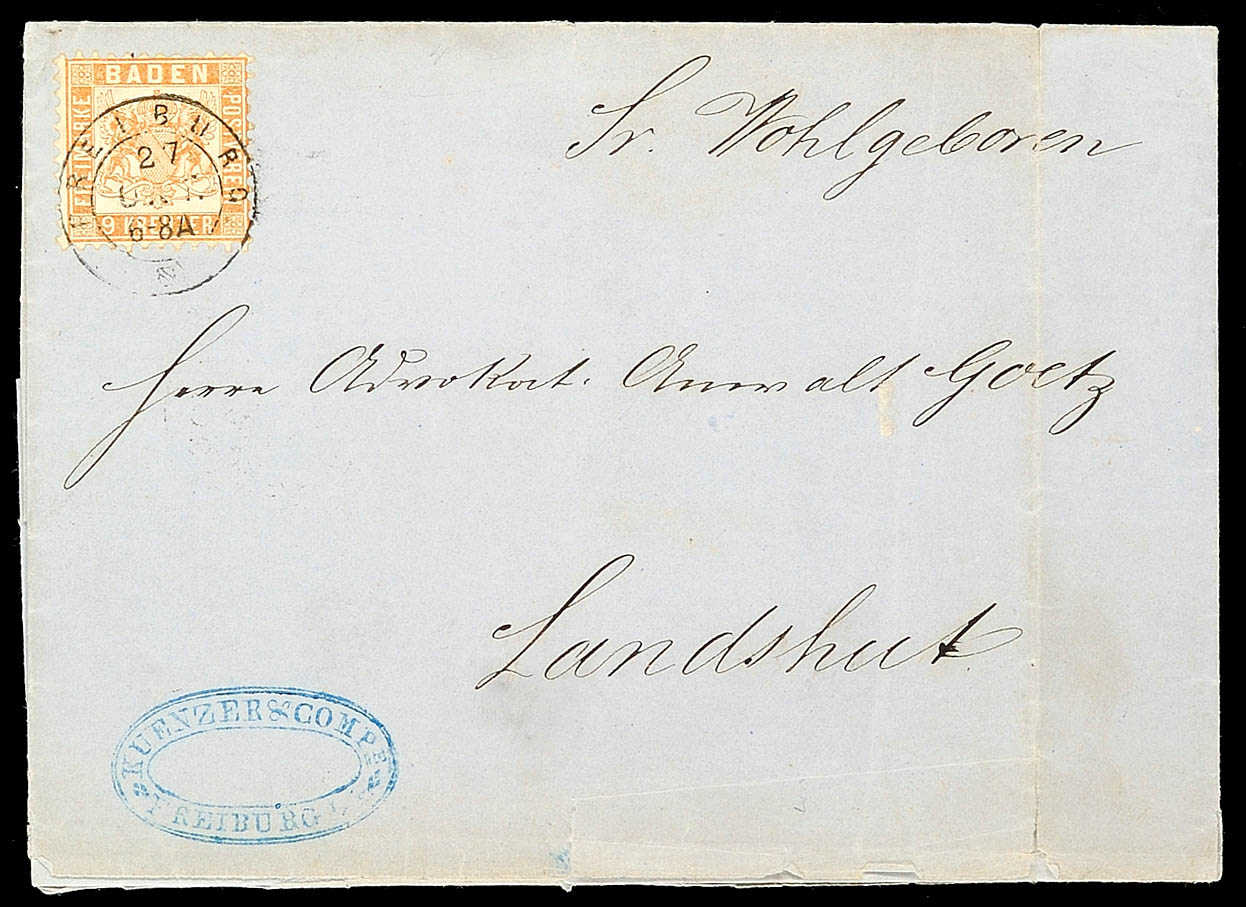 BADEN
FREIMARKE
POSTVEREIN
9 KREUZER
FREIBURG
27
6-8A
Sr. Wohlgeboren
Herrn Advokat. Anwalt Goetz
Landshut
KUENZER & COMPE
FREIBURG